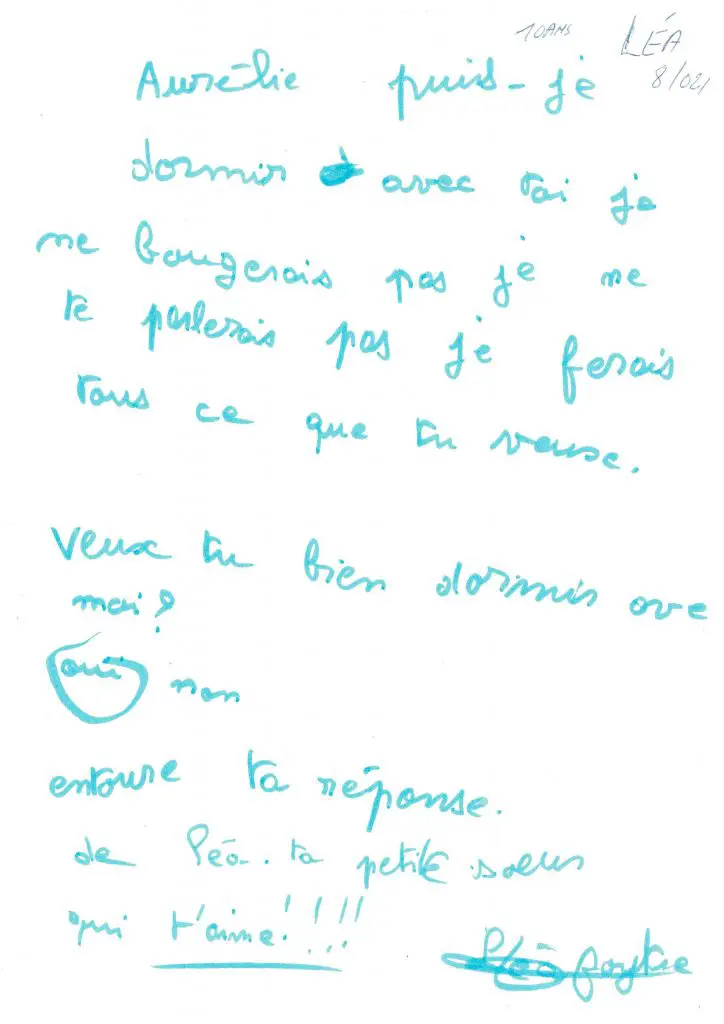 10 ANS LÉA
8/021
Aurélie puis-je
dormir avec toi je
ne bougerais pas je ne
te parlerais pas je ferais
tous ce que tu veuse.
Veux tu bien dormir ave
moi?
oui non
entoure ta réponse.
de léa.. ta petite soeur
qui t'aime!!!!!